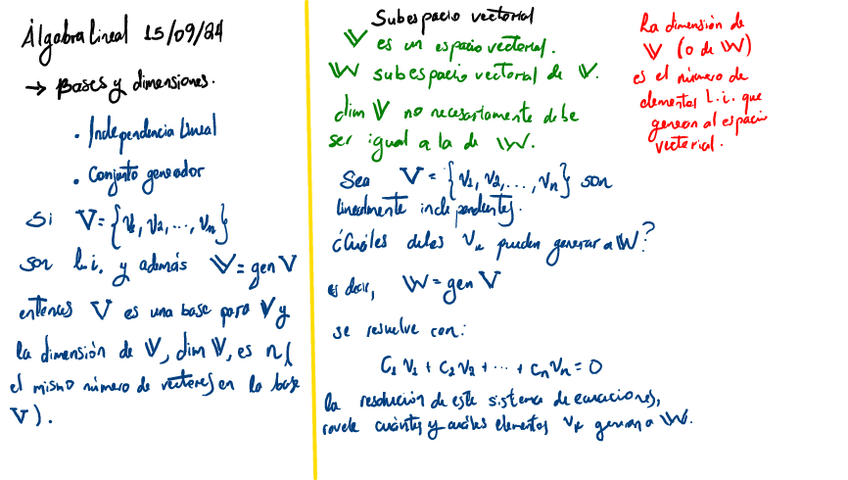 Álgebra lineal 15/09/24
→ Bases y dimensiones.
• Independencia Lineal
• Conjunto generador
Si V = {v₁, v₂, ..., vₙ}
son l.i. y además 𝕍 = gen V
entonces V es una base para 𝕍 y
la dimensión de 𝕍, dim 𝕍, es n (
el mismo número de vectores en la base
V).
Subespacio vectorial
𝕍 es un espacio vectorial.
𝕎 subespacio vectorial de 𝕍.
dim 𝕍 no necesariamente debe
ser igual a la de 𝕎.
Sea V = {v₁, v₂, ..., vₙ} son
linealmente independientes.
¿Cuáles de los vₖ pueden generar a 𝕎?
es decir, 𝕎 = gen V
se resuelve con:
c₁v₁ + c₂v₂ + ... + cₙvₙ = 0
la resolución de este sistema de ecuaciones,
revela cuántos y cuáles elementos vₖ generan a 𝕎.
La dimensión de
𝕍 (o de 𝕎)
es el número de
elementos l.i. que
generan al espacio
vectorial.